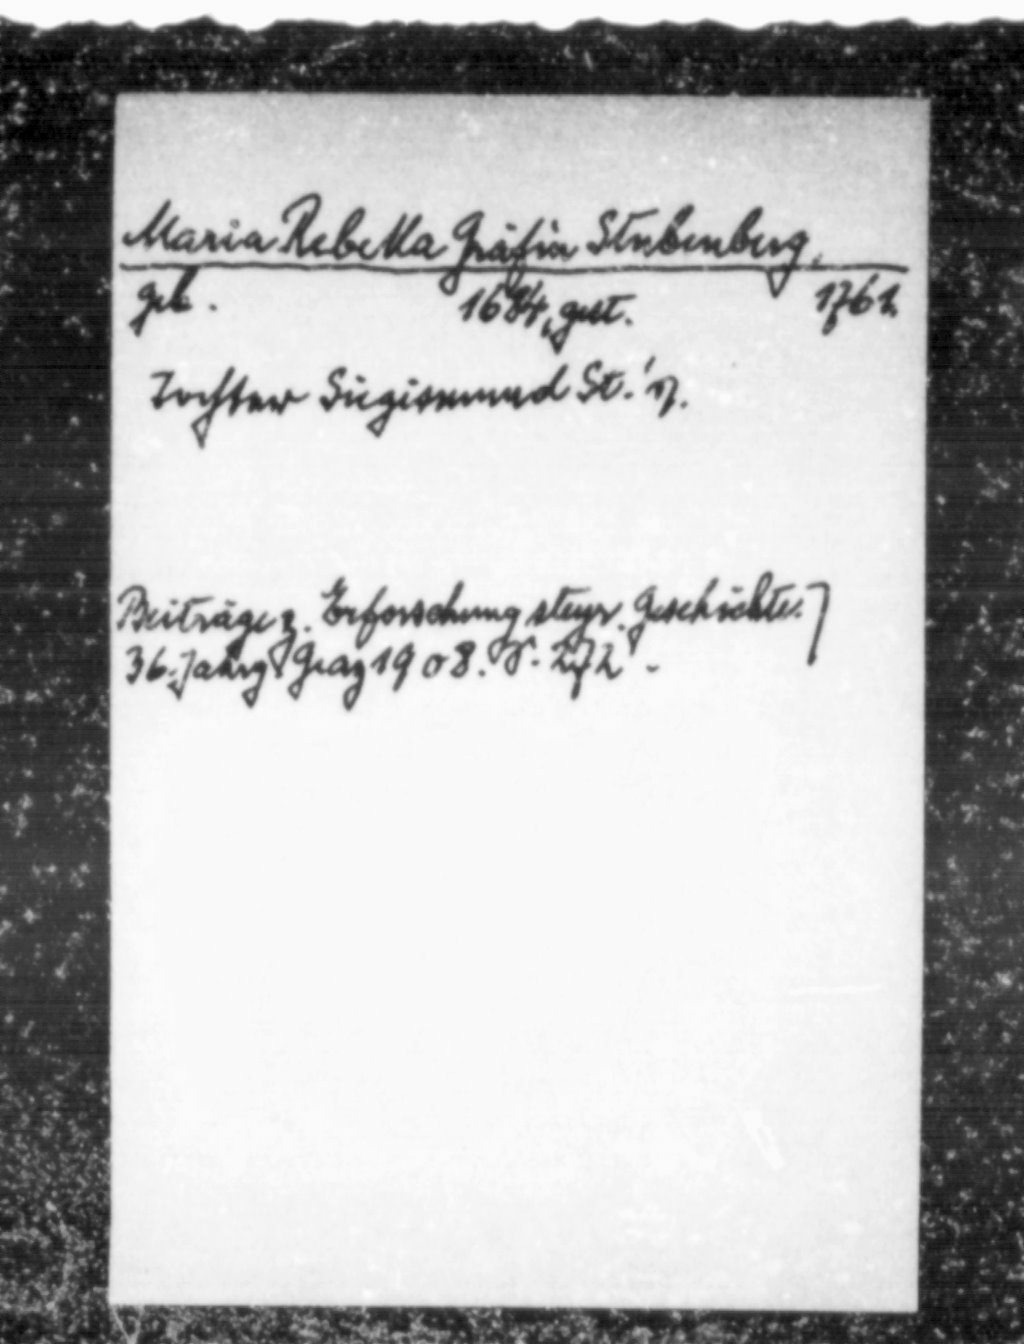 Maria Rebekka Gräfin Stubenberg.
geb. 1684, gest. 1761.
Tochter Siegismund St.'s.
Beiträge z. Erforschung steyr. Geschichte.]
36. Jahrg Graz 1908. S. 272.